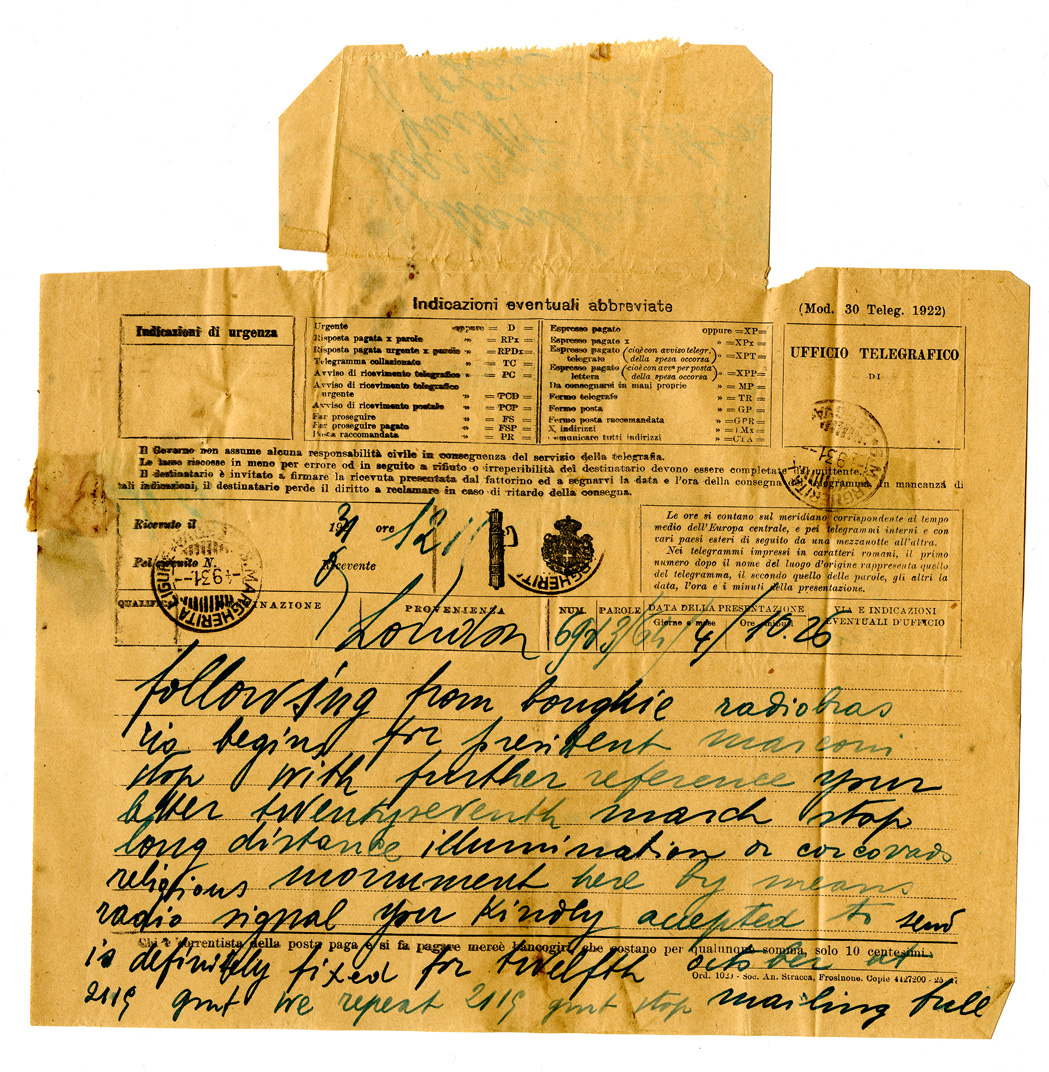 Indicazioni eventuali abbreviate
(Mod. 30 Teleg. 1922)
Indicazioni di urgenza
Urgente oppure = D =
Risposta pagata x parole » = RPx =
Risposta pagata urgente x parole » = RPDx =
Telegramma collazionato » = TC =
Avviso di ricevimento telegrafico » = PC =
Avviso di ricevimento telegrafico
urgente » = PCD =
Avviso di ricevimento postale » = PCP =
Far proseguire » = FS =
Far proseguire pagato » = FSP =
Posta raccomandata » = PR =
Espresso pagato oppure =XP=
Espresso pagato x » =XPx=
Espresso pagato (cioè con avviso telegr.
telegrafo della spesa occorsa) » =XPT=
Espresso pagato (cioè con avvº per posta
lettera della spesa occorsa) » =XPP=
Da consegnarsi in mani proprie » = MP =
Fermo telegrafo » = TR =
Fermo posta » = GP =
Fermo posta raccomandata » =GPR=
X indirizzi
comunicare tutti indirizzi » =CTA=
UFFICIO TELEGRAFICO
DI
Il Governo non assume alcuna responsabilità civile in conseguenza del servizio della telegrafia.
Le tasse riscosse in meno per errore od in seguito a rifiuto o irreperibilità del destinatario devono essere completate mittente.
Il destinatario è invitato a firmare la ricevuta presentata dal fattorino ed a segnarvi la data e l'ora della consegna telegramma in mancanza di
tali indicazioni, il destinatario perde il diritto a reclamare in caso di ritardo della consegna.
Ricevuto il 19 ore 12
Pel circuito N. Ricevente
MARGHERITA LIGURE
4.9.31
Le ore si contano sul meridiano corrispondente al tempo
medio dell'Europa centrale, e pei telegrammi interni e con
vari paesi esteri di seguito da una mezzanotte all'altra.
Nei telegrammi impressi in caratteri romani, il primo
numero dopo il nome del luogo d'origine rappresenta quello
del telegramma, il secondo quello delle parole, gli altri la
data, l'ora e i minuti della presentazione.
QUALIFICA DESTINAZIONE PROVENIENZA NUM. PAROLE DATA DELLA PRESENTAZIONE VIA E INDICAZIONI
Giorno e mese Ore minuti EVENTUALI D'UFFICIO
London 4/ 10.26
following from boughie radiobras
rio begins for president marconi
stop with further reference your
letter twentyseventh march stop
long distance illumination or corcovado
religious monument here by means
radio signal you kindly accepted to send
Chi è correntista della posta paga e si fa pagare mercè bancogiri, che costano per qualunque somma, solo 10 centesimi.
is definitely fixed for twelfth october at
Ord. 1029 - Soc. An. Stracca, Frosinone.
2119 gmt we repeat 2119 gmt stop mailing full